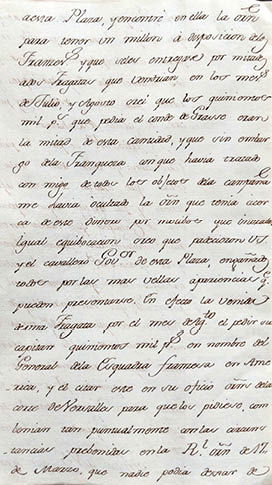 aesta Plaza, y encontré en ella la orn
para tener un millon à disposicion delos
Frances.s y que selos entregue por mitad
ados Fragatas que vendrian en los mes.s
de Julio, y Agosto crei que los quinientos
mil p.s que pedia el conde de Grasse eran
la mitad de esta cantidad, y que sin embar
go dela Franqueza con que havia tratado
con migo de todos los objetos dela campaña
me havia ocultado la orn que tenia acer
ca de este dinero por motibos que
Igual equibocacion creo que padecieron VS
y el cavallero Gov.or de esta Plaza, engañad
todos por las mas vellas apariencias q.
pueden presentarse. En efecto la venida
de una Fragata por el mes de Ag.to el pedir su
capitan quinientos mil p.s en nombre del
General de la Esquadra francesa en Ame
rica, y el citar este en su oficio orns dela
corte de Versalles para que los pidiese, com
benian tan puntualmente con las circuns
tancias prebenidas en la R.l orn de 17
de Marzo, que nadie podia dexar de